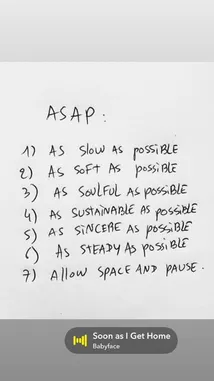 ASAP:
1) AS SLOW AS POSSIBLE
2) AS SOFT AS POSSIBLE
3) AS SOULFUL AS POSSIBLE
4) AS SUSTAINABLE AS POSSIBLE
5) AS SINCERE AS POSSIBLE
6) AS STEADY AS POSSIBLE
7) ALLOW SPACE AND PAUSE.
Soon as I Get Home
Babyface